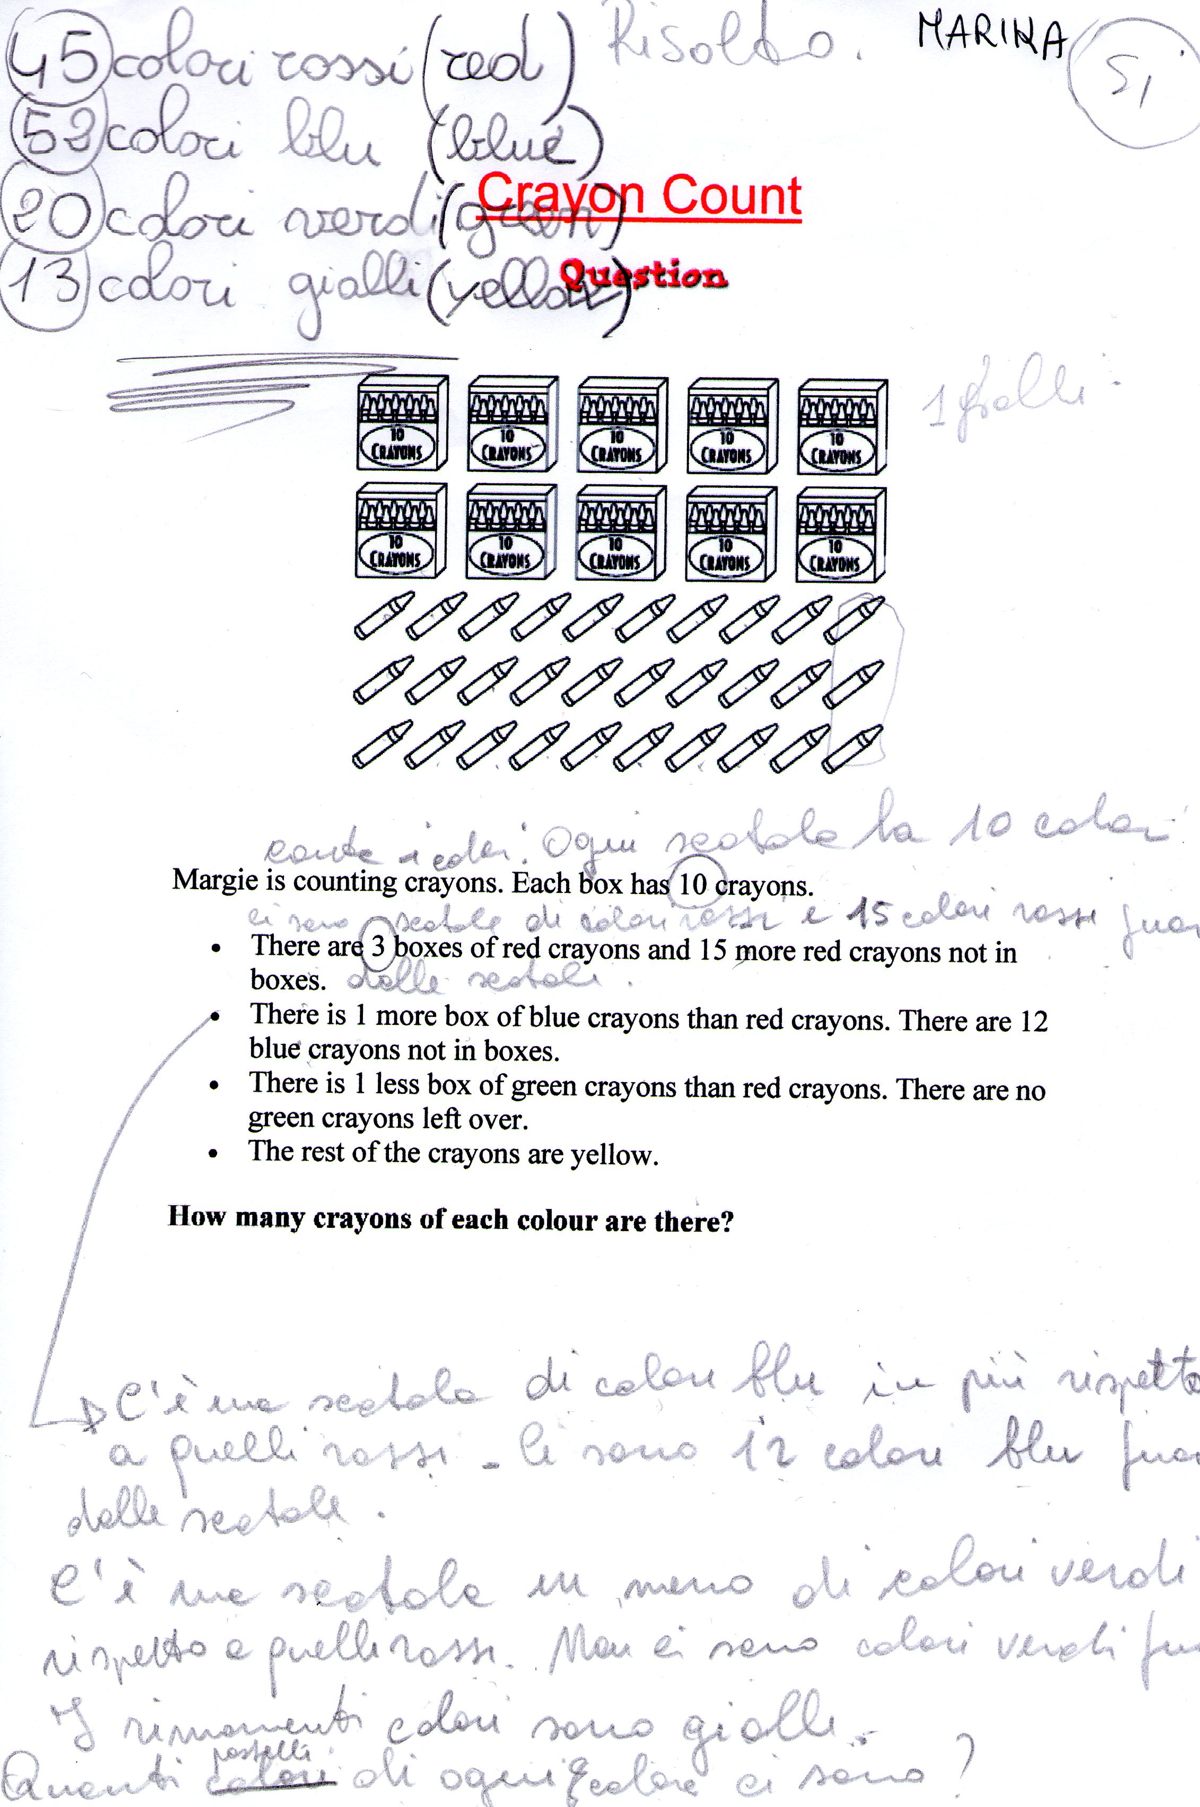 45 colori rossi (red) Risolto. MARINA SI
52 colori blu (blue)
20 colori verdi (green)
13 colori gialli (yellow)
Crayon Count
Question
1 gialli
10 CRAYONS 10 CRAYONS 10 CRAYONS 10 CRAYONS 10 CRAYONS
10 CRAYONS 10 CRAYONS 10 CRAYONS 10 CRAYONS 10 CRAYONS
conta i colori. Ogni scatola ha 10 colori
Margie is counting crayons. Each box has 10 crayons.
ci sono scatole di colori rossi e 15 colori rossi fuori
• There are 3 boxes of red crayons and 15 more red crayons not in
boxes. dalle scatole.
• There is 1 more box of blue crayons than red crayons. There are 12
blue crayons not in boxes.
• There is 1 less box of green crayons than red crayons. There are no
green crayons left over.
• The rest of the crayons are yellow.
How many crayons of each colour are there?
C'è una scatola di colori blu in più rispetto
a quelli rossi - Ci sono 12 colori blu fuori
dalle scatole.
C'è una scatola in meno di colori verdi
rispetto a quelli rossi. Non ci sono colori verdi
I rimanenti colori sono gialli.
pastelli
Quanti colori di ogni colore ci sono?